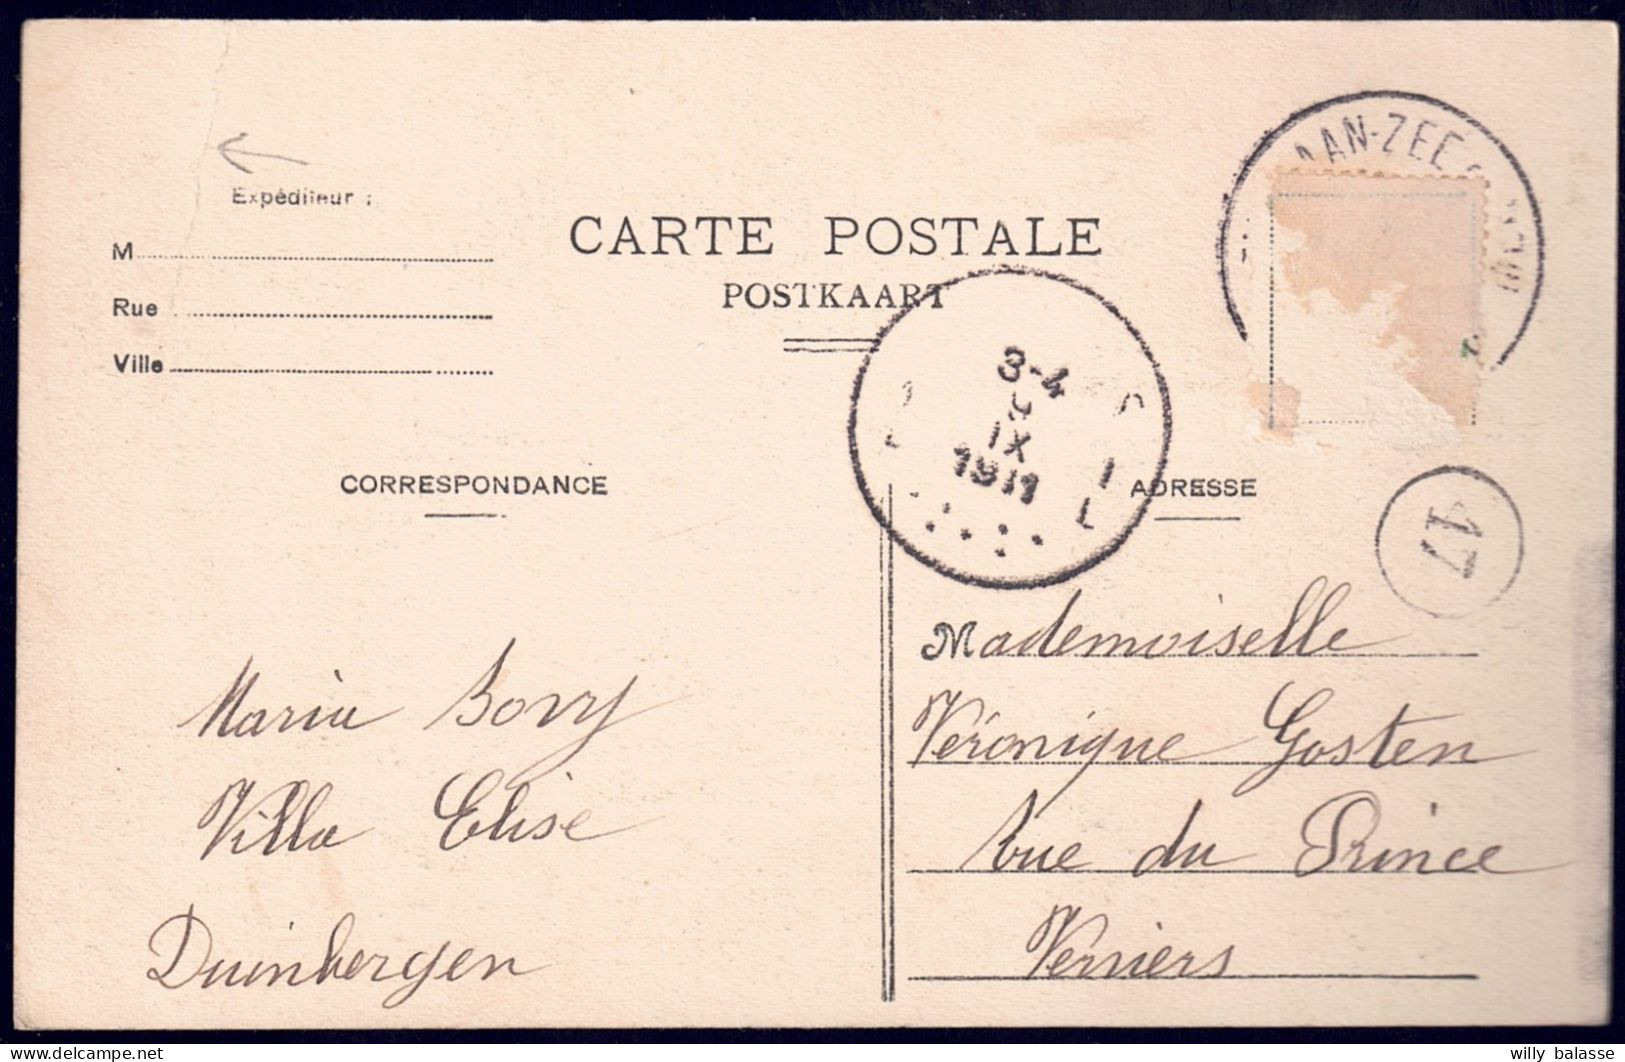 Expéditeur :
M
Rue
Ville
CARTE POSTALE
POSTKAART
AAN-ZEE
3-4
9
IX
1911
CORRESPONDANCE
ADRESSE
17
Maria Bovy
Villa Elise
Duinbergen
Mademoiselle
Véronique Gosten
Rue du Prince
Verviers
delcampe.net
willy balasse